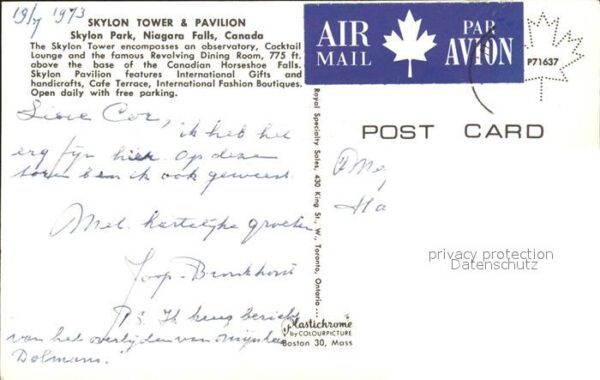 19/7 1973
SKYLON TOWER & PAVILION
Skylon Park, Niagara Falls, Canada
The Skylon Tower encompasses an observatory, Cocktail
Lounge and the famous Revolving Dining Room, 775 ft.
above the base of the Canadian Horseshoe Falls.
Skylon Pavilion features International Gifts and
handicrafts, Cafe Terrace, International Fashion Boutiques.
Open daily with free parking.
Lieve Cor,
ik heb het
erg fijn hier. Op deze
toren ben ik ook geweest.
Met hartelijke groeten
Joop Bronkhorst
P.S. Ik kreeg bericht
van het overlijden van mijnheer
Dolmans.
Royal Specialty Sales, 430 King St., W., Toronto, Ontario
Plastichrome
by COLOURPICTURE
Boston 30, Mass
AIR MAIL
PAR AVION
P71637
POST CARD
Ha
privacy protection
Datenschutz